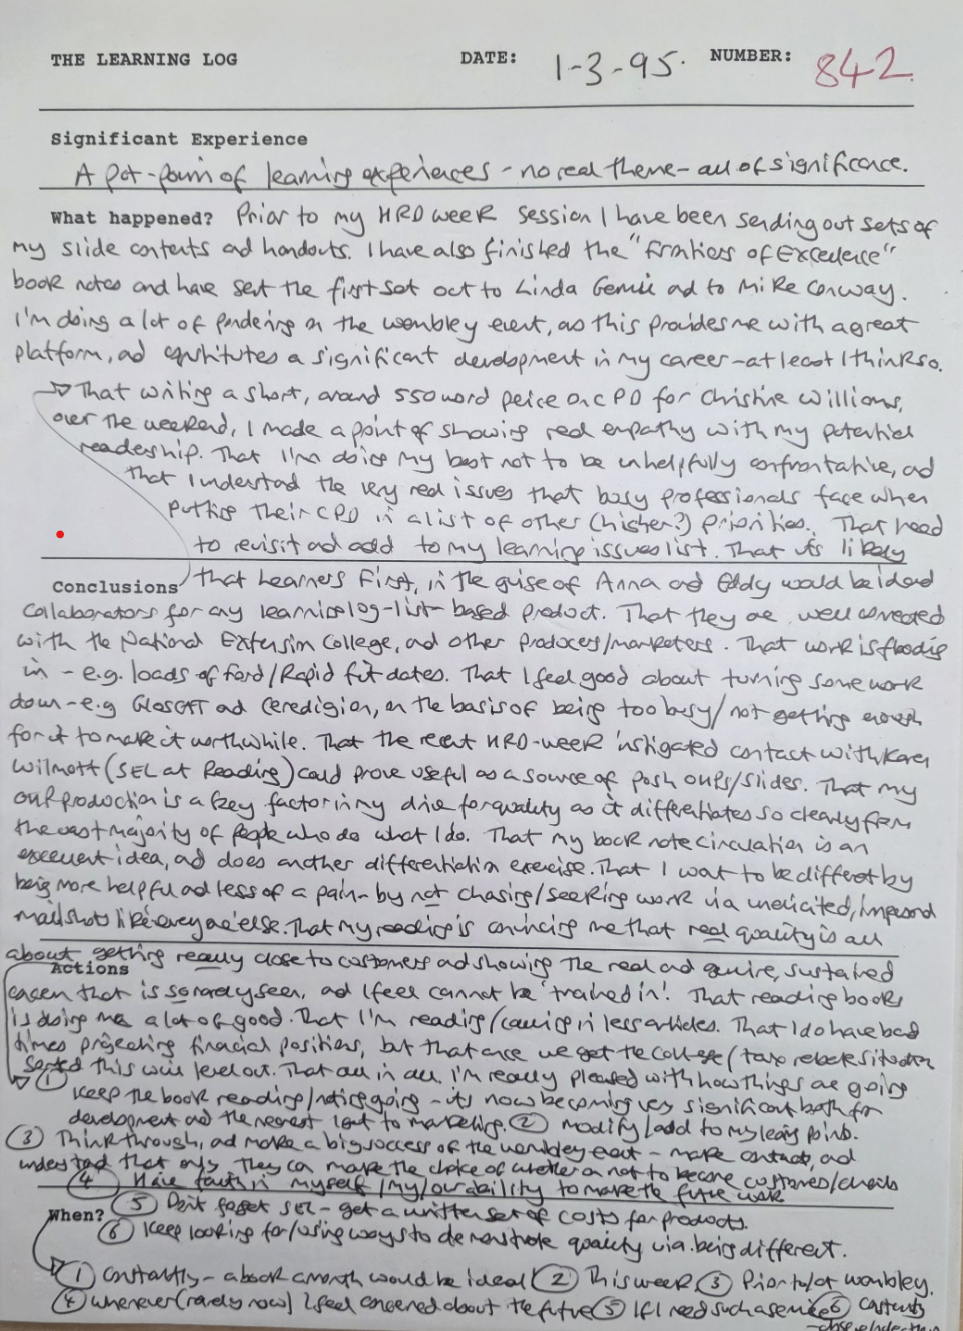 THE LEARNING LOG DATE: 1-3-95. NUMBER: 842
Significant Experience
A pot-pourri of learning experiences - no real theme - all of significance.
What happened? Prior to my HRD week session I have been sending out sets of
my slide contents and handouts. I have also finished the "Frontiers of Excellence"
book notes and have sent the first set out to Linda and to Mike Conway.
I'm doing a lot of pondering on the Wembley event, as this provides me with a great
platform, and constitutes a significant development in my career - at least I think so.
That writing a short, around 550 word peice on CPD for Christine Williams,
over the weekend, I made a point of showing real empathy with my potential
readership. That I'm doing my best not to be unhelpfully confrontative, and
that I understand the very real issues that busy professionals face when
putting their CPD in a list of other (higher?) priorities. That need
to revisit and add to my learning issues list. That its likely
Conclusions that Learners First, in the guise of Anna and Eddy would be ideal
collaborators for any learning log-list-based product. That they are well connected
with the National Extension College, and other producers/marketers. That work is flooding
in - e.g. loads of Ford/Rapid fit dates. That I feel good about turning some work
down - e.g and Ceredigion, on the basis of being too busy/not getting enough
for it to make it worthwhile. That the recent HRD-week instigated contact with Karen
Wilmott (SEL at Reading) could prove useful as a source of posh OHPs/slides. That my
OHP production is a key factor in my drive for quality as it differentiates so clearly from
the vast majority of people who do what I do. That my book note circulation is an
excellent idea, and does another differentiation exercise. That I want to be different by
being more helpful and less of a pain - by not chasing/seeking work via unelicited, impersonal
mailshots like everyone else. That my reading is convincing me that real quality is all
about getting really close to customers and showing the real and genuine, sustained
Actions
concern that is so rarely seen, and I feel cannot be 'trained in'! That reading books
is doing me a lot of good. That I'm reading/ in less articles. That I do have bad
times projecting financial positions, but that once we get the College/tax rebate situation
sorted this will level out. That all in all, I'm really pleased with how things are going
① Keep the book reading/noting going - its now becoming very significant both for
development and the nearest I get to marketing. ② modify/add to my learning points.
③ Think through, and make a big success of the Wembley event - make contacts, and
understand that only they can make the choice of whether or not to become customers/clients
④ Have faith in myself/my/our ability to make the future work
When? ⑤ Don't forget SEL - get a written set of costs for products.
⑥ Keep looking for/using ways to demonstrate quality via being different.
① Constantly - a book a month would be ideal! ② This week ③ Prior to/at Wembley.
④ Whenever (rarely now) I feel concerned about the future ⑤ If I need such a service ⑥ Constantly